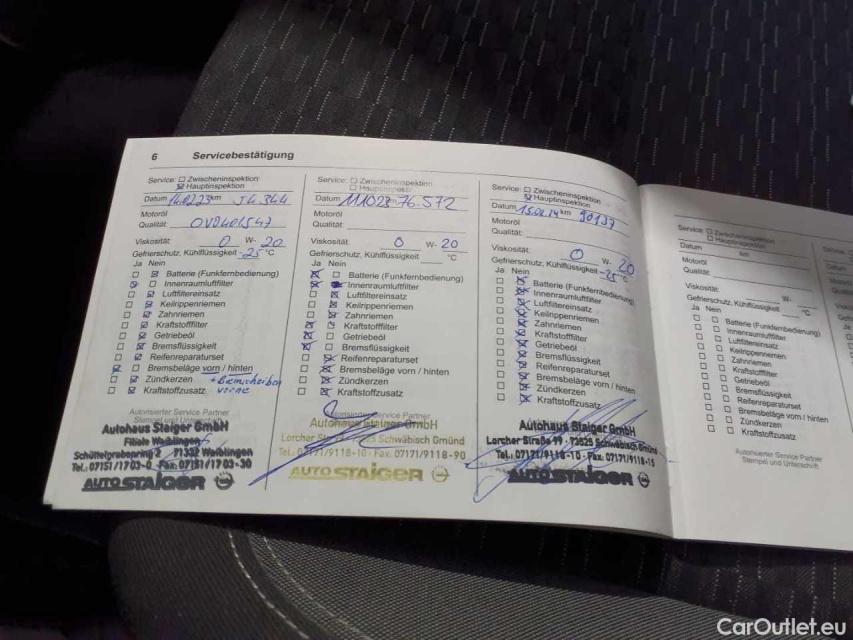 6 Servicebestätigung
Service: ☐ Zwischeninspektion
☒ Hauptinspektion
Datum 14.02.23 km 54.344
Motoröl
Qualität: OV0401547
Viskosität: 0 W- 20
Gefrierschutz, Kühlflüssigkeit -25 °C
Ja Nein
☐ ☒ Batterie (Funkfernbedienung)
☒ ☐ Innenraumluftfilter
☐ ☒ Luftfiltereinsatz
☐ ☒ Keilrippenriemen
☐ ☒ Zahnriemen
☐ ☒ Kraftstofffilter
☐ ☒ Getriebeöl
☐ ☒ Bremsflüssigkeit
☐ ☒ Reifenreparaturset
☒ ☐ Bremsbeläge vorn / hinten
☐ ☒ Zündkerzen + Bremsscheiben
☐ ☒ Kraftstoffzusatz vorne
Autorisierter Service Partner
Stempel und Unterschrift
Autohaus Staiger GmbH
Filiale Waiblingen
Schüttelgrabenring 2 71332 Waiblingen
Tel.: 07151/1703-0 Fax: 07151/1703-30
AUTO STAIGER
Service: ☐ Zwischeninspektion
☐ Hauptinspektion
Datum 76.572
Motoröl
Qualität:
Viskosität: 0 W- 20
Gefrierschutz, Kühlflüssigkeit °C
Ja Nein
☒ ☐ Batterie (Funkfernbedienung)
☒ Innenraumluftfilter
☐ ☒ Luftfiltereinsatz
☐ ☒ Keilrippenriemen
☐ ☒ Zahnriemen
☒ Kraftstofffilter
☒ ☐ Getriebeöl
☒ ☐ Bremsflüssigkeit
☐ ☒ Reifenreparaturset
☐ ☒ Bremsbeläge vorn / hinten
☐ ☒ Zündkerzen
☐ ☒ Kraftstoffzusatz
Autorisierter Service Partner
Autohaus Staiger GmbH
Lorcher Straße 73525 Schwäbisch Gmünd
Tel.: 07171/9118-10 · Fax: 07171/9118-90
AUTO STAIGER
Service: ☐ Zwischeninspektion
☒ Hauptinspektion
Datum km 90137
Motoröl
Qualität:
Viskosität: 0 W- 20
Gefrierschutz, Kühlflüssigkeit -25 °C
Ja Nein
☐ ☒ Batterie (Funkfernbedienung)
☐ ☒ Innenraumluftfilter
☐ ☒ Luftfiltereinsatz
☐ ☒ Keilrippenriemen
☐ ☒ Zahnriemen
☐ ☒ Kraftstofffilter
☐ ☒ Getriebeöl
☐ ☒ Bremsflüssigkeit
☐ ☒ Reifenreparaturset
☐ ☒ Bremsbeläge vorn / hinten
☐ ☒ Zündkerzen
☐ ☒ Kraftstoffzusatz
Autohaus Staiger GmbH
Lorcher Straße 99 · 73525 Schwäbisch Gmünd
Tel.: 07171/9118-10 · Fax: 07171/9118-15
AUTO STAIGER
Service: ☐ Zwischeninspektion
☐ Hauptinspektion
Datum km
Motoröl
Qualität:
Viskosität: W-
Gefrierschutz, Kühlflüssigkeit °C
Ja Nein
☐ ☐ Batterie (Funkfernbedienung)
☐ ☐ Innenraumluftfilter
☐ ☐ Luftfiltereinsatz
☐ ☐ Keilrippenriemen
☐ ☐ Zahnriemen
☐ ☐ Kraftstofffilter
☐ ☐ Getriebeöl
☐ ☐ Bremsflüssigkeit
☐ ☐ Reifenreparaturset
☐ ☐ Bremsbeläge vorn / hinten
☐ ☐ Zündkerzen
☐ ☐ Kraftstoffzusatz
Autorisierter Service Partner
Stempel und Unterschrift
CarOutlet.eu